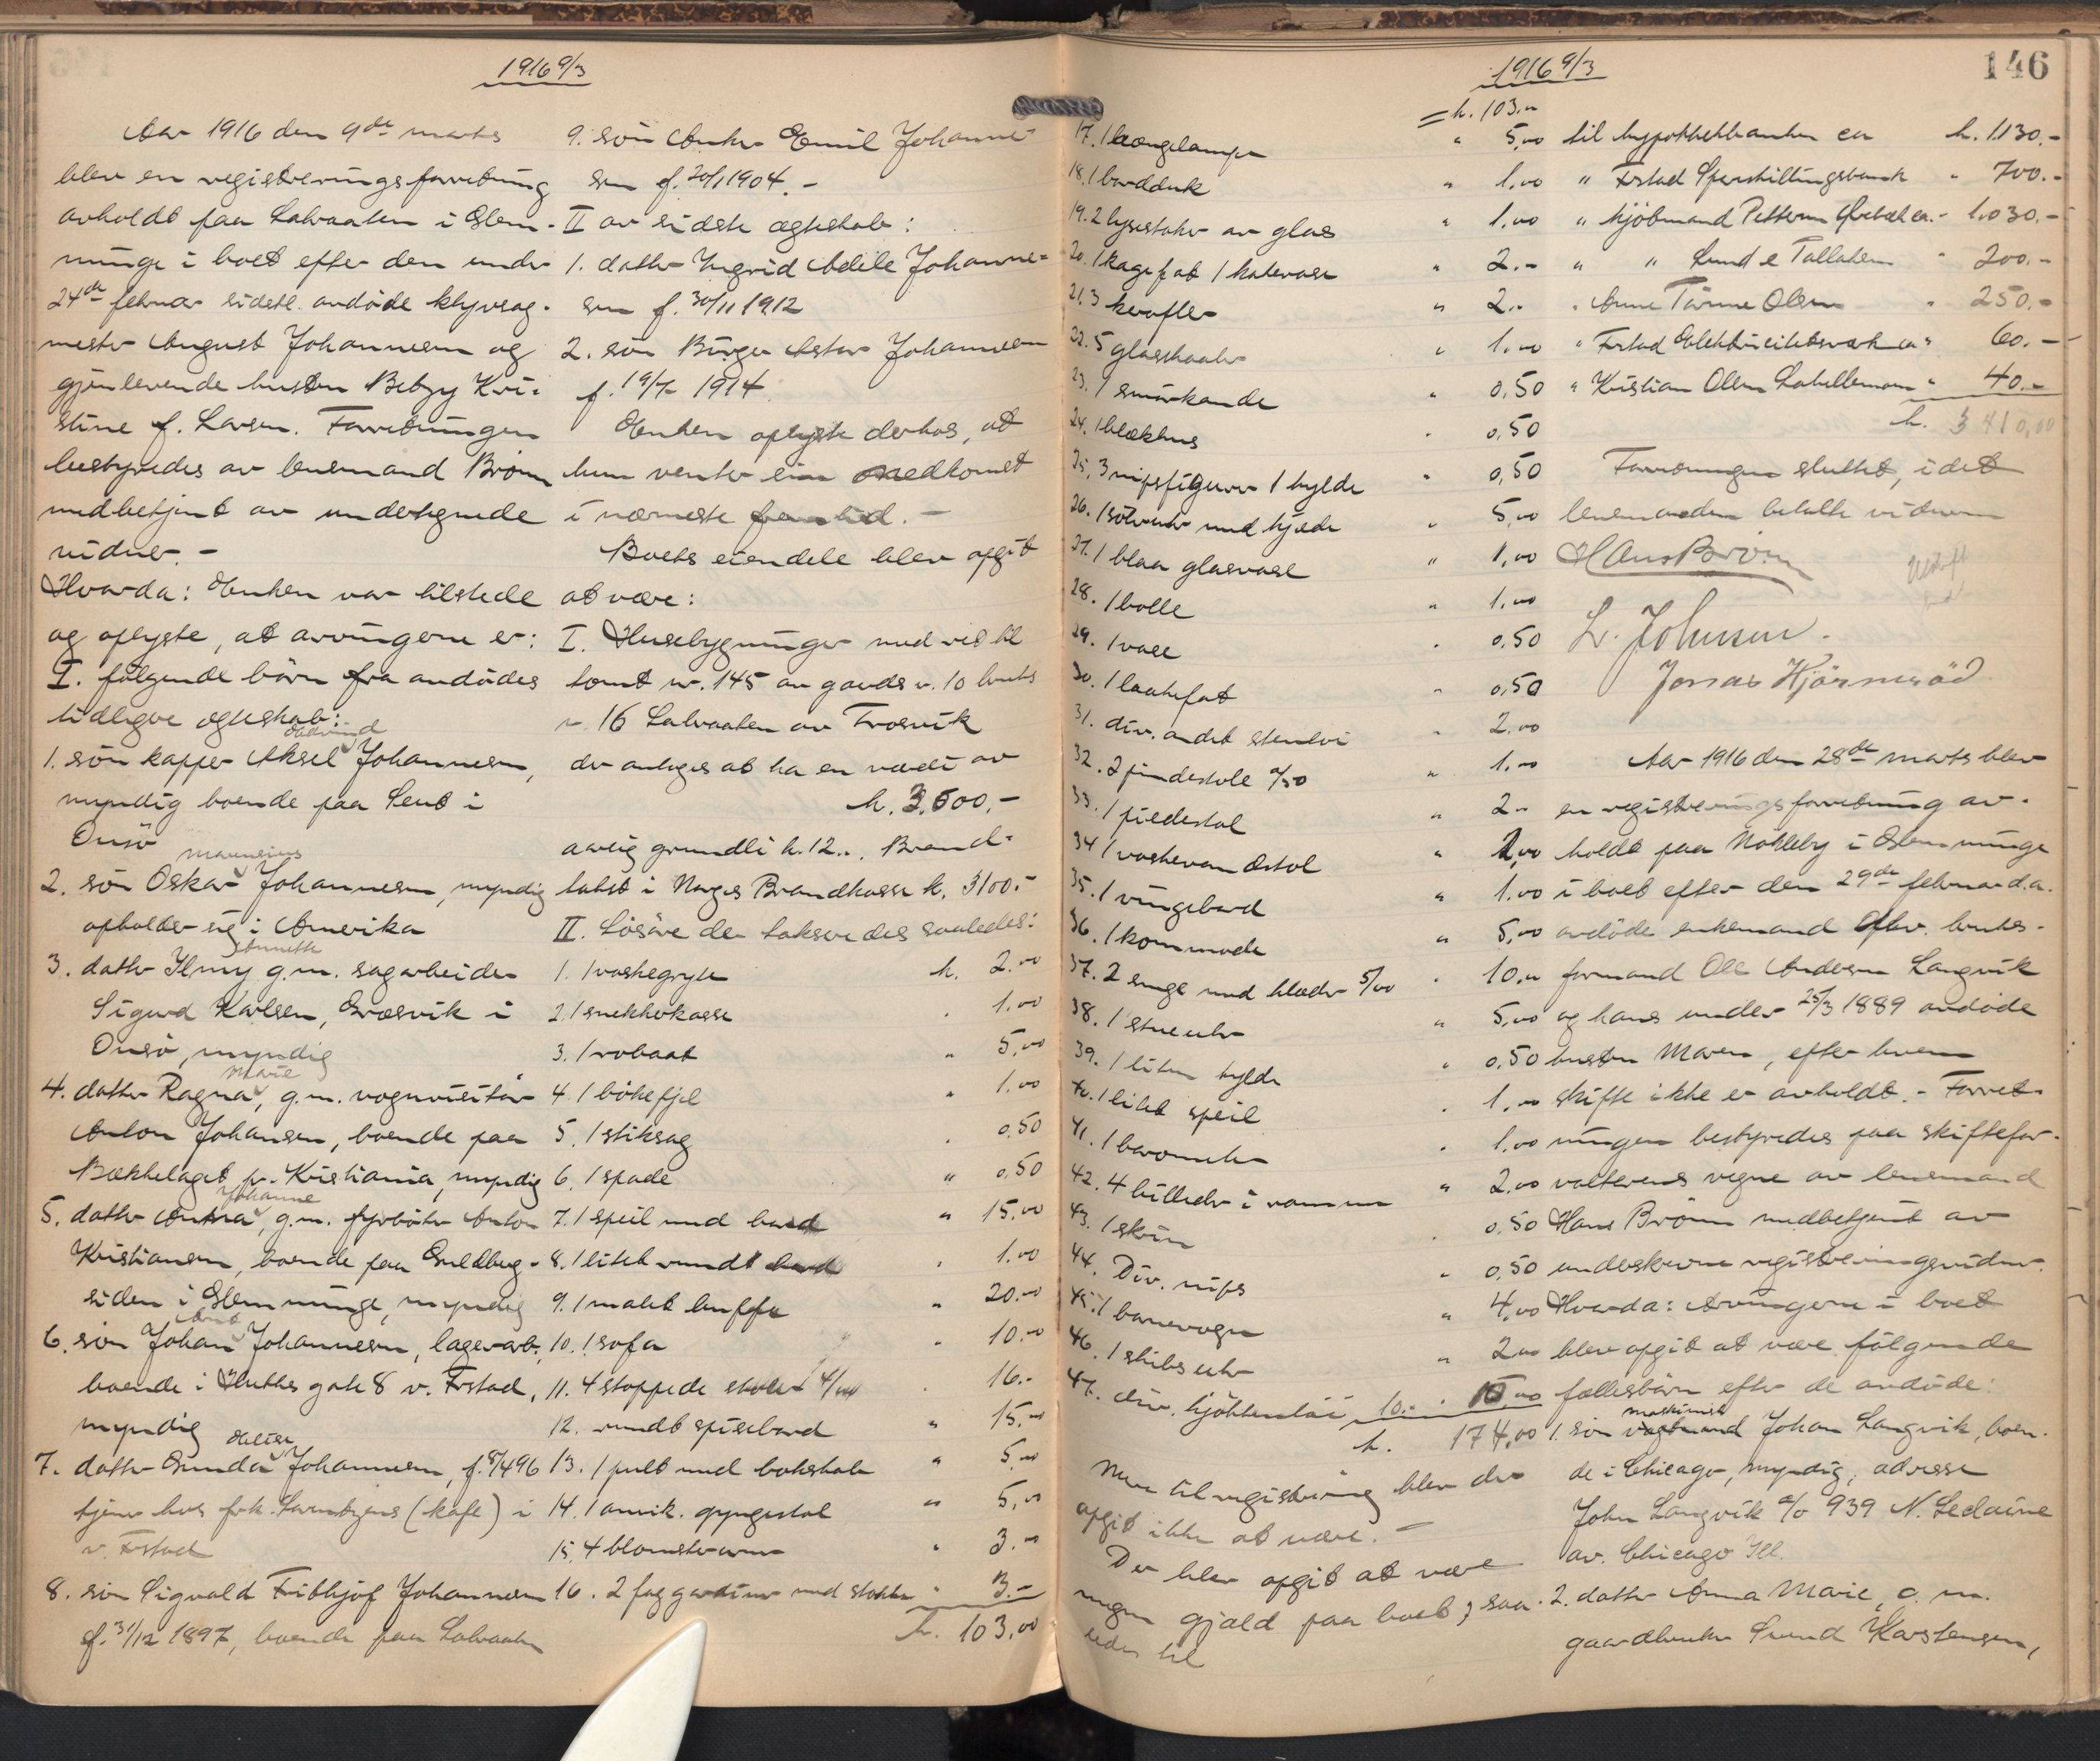 1916 9/3
Aar 1916 den 9de marts
blev en registreringsforretning
avholdt paa Lalvaaten i Glem-
minge i boet efter den under
24de februar sidstl. avdöde klyvsag-
mester August Johannesen og
gjenlevende hustru Betzy Kri-
stine f. Larsen. Forretningen
bestyredes av lensmand Brönn
medbetjent av undertegnede
vidner. -
Hvorda: Enken var tilstede
og oplyste, at arvingerne er:
I. fölgende börn fra avdödes
tidligere egteskab:
1. sön kapper Aksel Johannesen,
myndig boende paa Lent i
Onsö
mauneius
2. sön Oskar Johannesen, myndig
opholder sig i Amerika
Annette
3. datter Ilmy g.m. sagarbeider
Sigurd Karlsen, Græsvik i
Onsö, myndig
Marie
4. datter Ragna, g.m. vognvisitör
Anton Johansen, boende paa
Bækkelaget pr. Kristiania, myndig
Johanne
5. datter Anna, g.m. fyrböter Anton
Kristiansen, boende paa Guldberg-
siden i Glemminge, myndig
6. sön Johan Johannesen, lagerarb.,
boende i Huthes gate 8 v. Frstad,
myndig
7. datter Gunda Johannesen, f. 8/4 96
tjener hos frk. (kafe) i
v. Frstad
8. sön Sigvald Frithjof Johannesen
f. 31/12 1897, boende paa Lalvaaten
9. sön Anker Emil Johanne-
sen f. 20/1 1904. -
II av sidste egteskab:
1. datter Ingrid Adele Johanne-
sen f. 30/11 1912
2. sön Birger Astor Johannesen
f. 19/7 1914.
Enken oplyste derhos, at
hun venter sin nedkomst
i nærmeste fremtid. -
Boets eiendele blev opgit
at være:
I. Husebygninger med ret til
tomt nr. 145 av gaards n. 10 bruks
n. 16 Lalvaaten av Trosvik
der antages at ha en værdi av
k. 3.500,-
aarlig grundlei k. 12.-. Brand-
takst i Norges Brandkasse k. 3100.-
II. Lösöre der takseredes saaledes:
1. 1 vaskegryte k. 2.00
2. 1 snekkekasse " 1.00
3. 1 robaat " 5.00
4. 1 bökefjel " 1.00
5. 1 stiksag " 0.50
6. 1 spade " 0.50
7. 1 speil med bord " 15.00
8. 1 litet rundt bord " 1.00
9. 1 malet buffe " 20.00
10. 1 sofa " 10.00
11. 4 stoppede stoler 4/00 " 16.-
12. rundt spisebord " 15.00
13. 1 pult med bokskab " 5.00
14. 1 amrik. gyngestol " 5.00
15. 4 blomsterurner " 3.00
16. 2 fag gardiner med stokker " 3.-
k. 103,00
1916 9/3
146
= k. 103.-
17. 1 hængelampe " 5,00
18. 1 bordduk " 1.00
19. 2 lysestaker av glas " 1,00
20. 1 kagefat 1 kakevase " 2.-
21. 3 karafler " 2.-
22. 5 glasskaaler " 1.00
23. 1 smörkande " 0,50
24. 1 blækhus " 0,50
25. 3 nipsfigurer 1 hylde " 0,50
26. 1 sölvuhr med kjede " 5,00
27. 1 blaa glasvase " 1,00
28. 1 bolle " 1,00
29. 1 vase " 0,50
30. 1 kakefat " 0,50
31. div. andet stentöi " 2.00
32. 2 pindestole a/50 " 1.00
33. 1 piedestal " 2.-
34 1 vaskevandstol " 2,00
35. 1 vingebord " 1.00
36. 1 kommode " 5,00
37. 2 senge med klæder 5/00 " 10.00
38. 1 stueuhr " 5,00
39. 1 liten hylde " 0.50
40. 1 litet speil " 1.00
41. 1 barometer " 1.00
42. 4 billeder i ramme " 2.00
43. 1 skrin " 0.50
44. Div. nips " 0,50
45. 1 barnevogn " 4,00
46. 1 skibsuhr " 2.00
47. div. kjökkentöi 10.- " 10,00
k. 174,00
Mer til registrering blev der
opgit ikke at være. -
Der blev opgit at være
megen gjæld paa boet, saa-
ledes til
til hypotekbanken ca k. 1130.-
" Frstad Sparskillingsbank " 700.-
" kjöbmand Pettersen ca. - 1.030.-
" " Lunde Tallaksen " 200.-
" Anne Törine Olsen " 250.-
" Frstad Elektricitetsverk ca " 60.-
" Kristian Olsen " 40.-
k. 3410,00
Forretningen sluttet, idet
lensmanden betalte vidnerne
Hans Brönn
L. Johnsen.
Jonas Hjörnesöd
Aar 1916 den 28de marts blev
en registreringsforretning av-
holdt paa Nökleby i Glemminge
i boet efter den 29de februar d.a.
avdöde enkemand fhv. bruks-
formand Ole Andersen Langvik
og hans under 25/3 1889 avdöde
hustru Maren, efter hvem
skifte ikke er avholdt. - Forret-
ningen bestyredes paa skiftefor-
valterens vegne av lensmand
Hans Brönn medbetjent av
underskrevne registreringsvidner.
Hvorda: Arvingerne i boet
blev opgit at være fölgende
fællesbörn efter de avdöde:
maskinist
1. sön Johan Langvik, boen-
de i Chicago, myndig, adresse
John Langvik c/o 939 N. Leclaire
av. Chicago Ill.
2. datter Anna Marie, g. m.
gaardbruker Svend Karstensen,